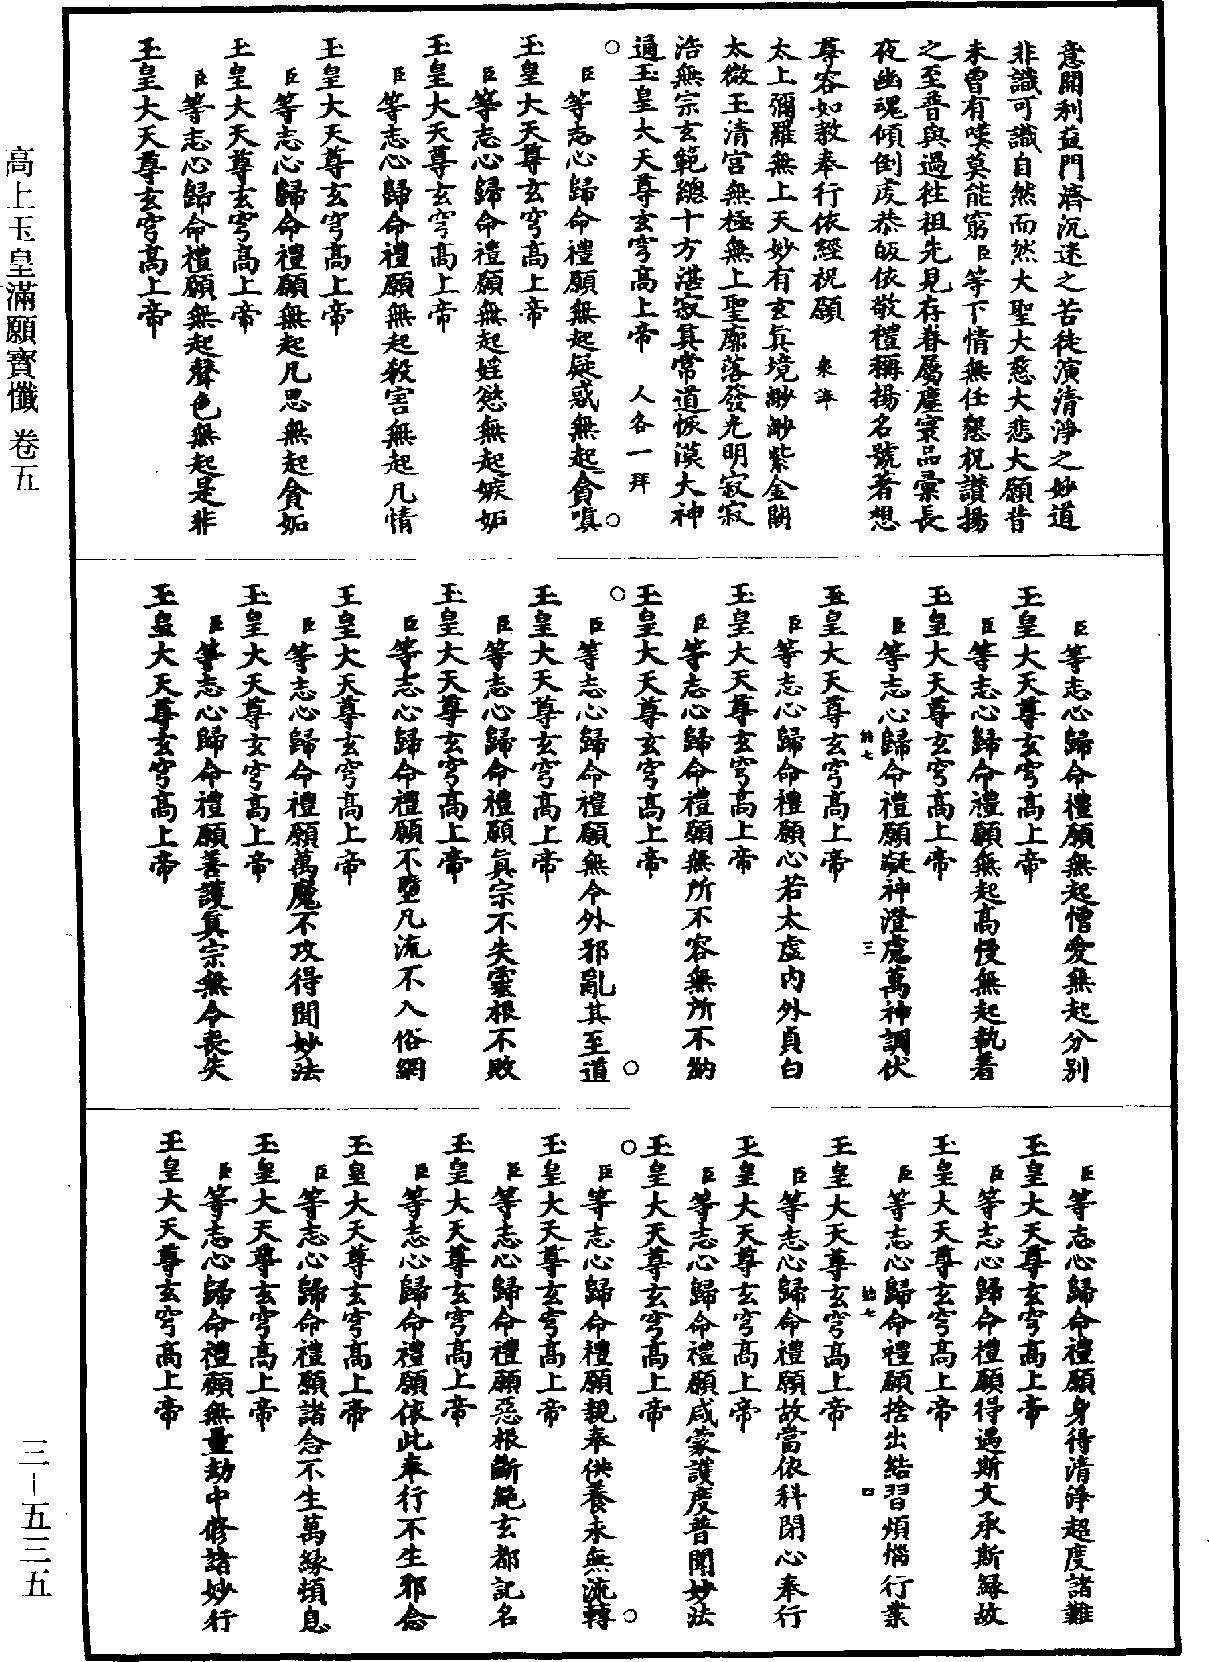 意開利益門濟沉迷之苦徒演清淨之妙道
非識可識自然而然大聖大慈大悲大願昔
未曾有嘆莫能窮臣等下情無任懇祝讃揚
之至普與過往祖先見存眷屬塵寰品彙長
夜幽魂傾倒虔恭皈依敬禮稱揚名號著想
尊容如教奉行依經祝願 衆諱
太上彌羅無上天妙有玄真境渺渺紫金闕
太微玉清宮無極無上聖廓落發光明寂寂
浩無宗玄範總十方湛寂真常道恢漠大神
通玉皇大天尊玄穹高上帝 人各一拜
臣等志心歸命禮願無起疑惑無起貪嗔
玉皇大天尊玄穹高上帝
臣等志心歸命禮願無起婬慾無起嫉妬
玉皇大天尊玄穹高上帝
臣等志心歸命禮願無起殺害無起凡情
玉皇大天尊玄穹高上帝
臣等志心歸命禮願無起凡思無起貪妬
玉皇大天尊玄穹高上帝
臣等志心歸命禮願無起聲色無起是非
玉皇大天尊玄穹高上帝
臣等志心歸命禮願無起憎愛無起分別
玉皇大天尊玄穹高上帝
臣等志心歸命禮願無起高慢無起執著
玉皇大天尊玄穹高上帝
臣等志心歸命禮願凝神澄慮萬神調伏
三
玉皇大天尊玄穹高上帝
臣等志心歸命禮願心若太虛内外貞白
玉皇大天尊玄穹高上帝
臣等志心歸命禮願無所不容無所不納
玉皇大天尊玄穹高上帝
臣等志心歸命禮願無令外邪亂其至道
玉皇大天尊玄穹高上帝
臣等志心歸命禮願真宗不失靈根不敗
玉皇大天尊玄穹高上帝
臣等志心歸命禮願不墮凡流不入俗網
玉皇大天尊玄穹高上帝
臣等志心歸命禮願萬魔不攻得聞妙法
玉皇大天尊玄穹高上帝
臣等志心歸命禮願善護真宗無令喪失
玉皇大天尊玄穹高上帝
臣等志心歸命禮願身得清淨超度諸難
玉皇大天尊玄穹高上帝
臣等志心歸命禮願得遇斯文承斯緣故
玉皇大天尊玄穹高上帝
臣等志心歸命禮願捨出結習煩惱行業
四
玉皇大天尊玄穹高上帝
臣等志心歸命禮願故當依科閉心奉行
玉皇大天尊玄穹高上帝
臣等志心歸命禮願咸蒙護度普聞妙法
玉皇大天尊玄穹高上帝
臣等志心歸命禮願親奉供養永無流轉
玉皇大天尊玄穹高上帝
臣等志心歸命禮願惡根斷絕玄都記名
玉皇大天尊玄穹高上帝
臣等志心歸命禮願依此奉行不生邪念
玉皇大天尊玄穹高上帝
臣等志心歸命禮願諸念不生萬緣頓息
玉皇大天尊玄穹高上帝
臣等志心歸命禮願無量劫中修諸妙行
玉皇大天尊玄穹高上帝
高上玉皇滿願寶懺 卷五
三－五三五